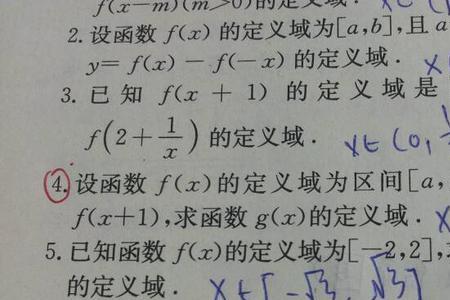 f(x-m)(m>0)的定义域. x∈(
2. 设函数 f(x) 的定义域为[a,b],且 a
y= f(x) - f(-x) 的定义域. x
3. 已知 f(x + 1) 的定义域是
f(2+1/x) 的定义域. x∈(0,
4. 设函数 f(x)的定义域为区间[a,
f(x+1),求函数 g(x)的定义域. x
5. 已知函数 f(x)的定义域为[-2,2],
的定义域. x∈[-√3, √3]